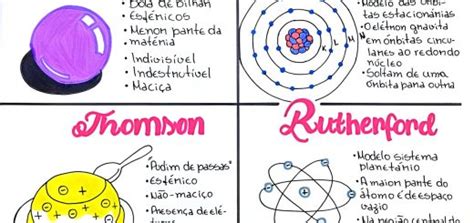 • Bola de bilhar
• Esféricos
• Menor parte da
matéria
• Indivisível
• Indestrutível
• Maciça
• Modelo das órbi-
tas estacionárias
• O elétron gravita
em órbitas circu-
lares ao redor do
núcleo
• Saltam de uma
órbita para outra
K L M
Thomson
• "Pudim de passas"
• Esférico
• Não-maciço
• Presença de elé-
Rutherford
• Modelo sistema
planetário
• A maior parte do
átomo é de espaço
vazio
• Na região central do